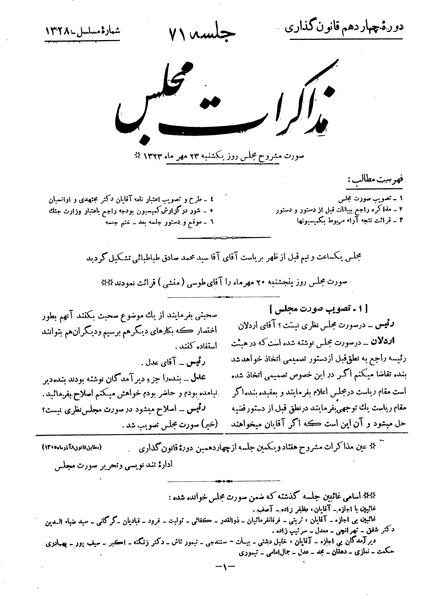 دورهٔ چهاردهم قانون گذاری
جلسه ۷۱
شمارهٔ مسلسل - ۱۳۲۸
مذاکرات مجلس
صورت مشروح مجلس روز یکشنبه ۲۳ مهر ماه ۱۳۲۳ *
فهرست مطالب:
۱ - تصویب صورت مجلس
۲ - مذاکره راجع ببیانات قبل از دستور و دستور
۳ - قرائت نتیجه آراء مربوط بکمیسیونها
۴ - طرح و تصویب اعتبار نامه آقایان دکتر مجتهدی و اردلان
۵ - شور در گزارش کمیسیون بودجه راجع باعتبار وزارت جنگ
۶ - موقع و دستور جلسه بعد - ختم جلسه
مجلس یکساعت و نیم قبل از ظهر بریاست آقای آقا سید محمد صادق طباطبائی تشکیل گردید
صورت مجلس روز پنجشنبه ۲۰ مهر ماه را آقای طوسی (منشی) قرائت نمودند **
[ ۱ - تصویب صورت مجلس ]
رئیس - در صورت مجلس نظری نیست؟ آقای اردلان
اردلان - در صورت مجلس نوشته شده است که در هیئت
رئیسه راجع به نطق قبل از دستور تصمیمی اتخاذ خواهد شد
بنده تقاضا میکنم اگر در این خصوص تصمیمی اتخاذ شده
است مقام ریاست در مجلس اعلام بفرمایند و بعقیده بنده اگر
مقام ریاست یک توجهی بفرمایند در نطق قبل از دستور قضیه
حل میشود و آن این است که اگر آقایان میخواهند
صحبتی بفرمایند از یک موضوع صحبت بکنند آنهم بطور
اختصار که بکارهای دیگر هم برسیم و دیگران هم بتوانند
استفاده کنند.
رئیس - آقای عدل.
عدل - بنده را جزو دیر آمدگان نوشته بودند بنده دیر
نیامده بودم و حاضر بودم خواهش میکنم اصلاح بفرمائید.
رئیس - اصلاح میشود در صورت مجلس نظری نیست؟
(خیر) صورت مجلس تصویب شد.
* عین مذاکرات مشروح هفتاد و یکمین جلسه از چهاردهمین دورهٔ قانون گذاری
(مطابق قانون ۸ آذر ماه ۱۳۰۵)
ادارهٔ تند نویسی و تحریر صورت مجلس
** اسامی غائبین جلسه گذشته که ضمن صورت مجلس خوانده شده:
غائبین با اجازه - آقایان: مظفر زاده - آصف.
غائبین بی اجازه - آقایان: تربتی - فرمانفرمائیان - ذوالقدر - کفائی - تولیت - فرود - قبادیان - گرگانی - سید ضیاء الدین
دکتر شفق - تهرانچی - معدل - سرتیپ زاده.
دیر آمدگان بی اجازه - آقایان: خلیل دشتی - بیات - سنندجی - تیمور تاش - دکتر زنگنه - اکبر - سیف پور - بهادری
حکمت - نمازی - دهقان - مجد - عدل - جمال امامی - تیموری
-۱-